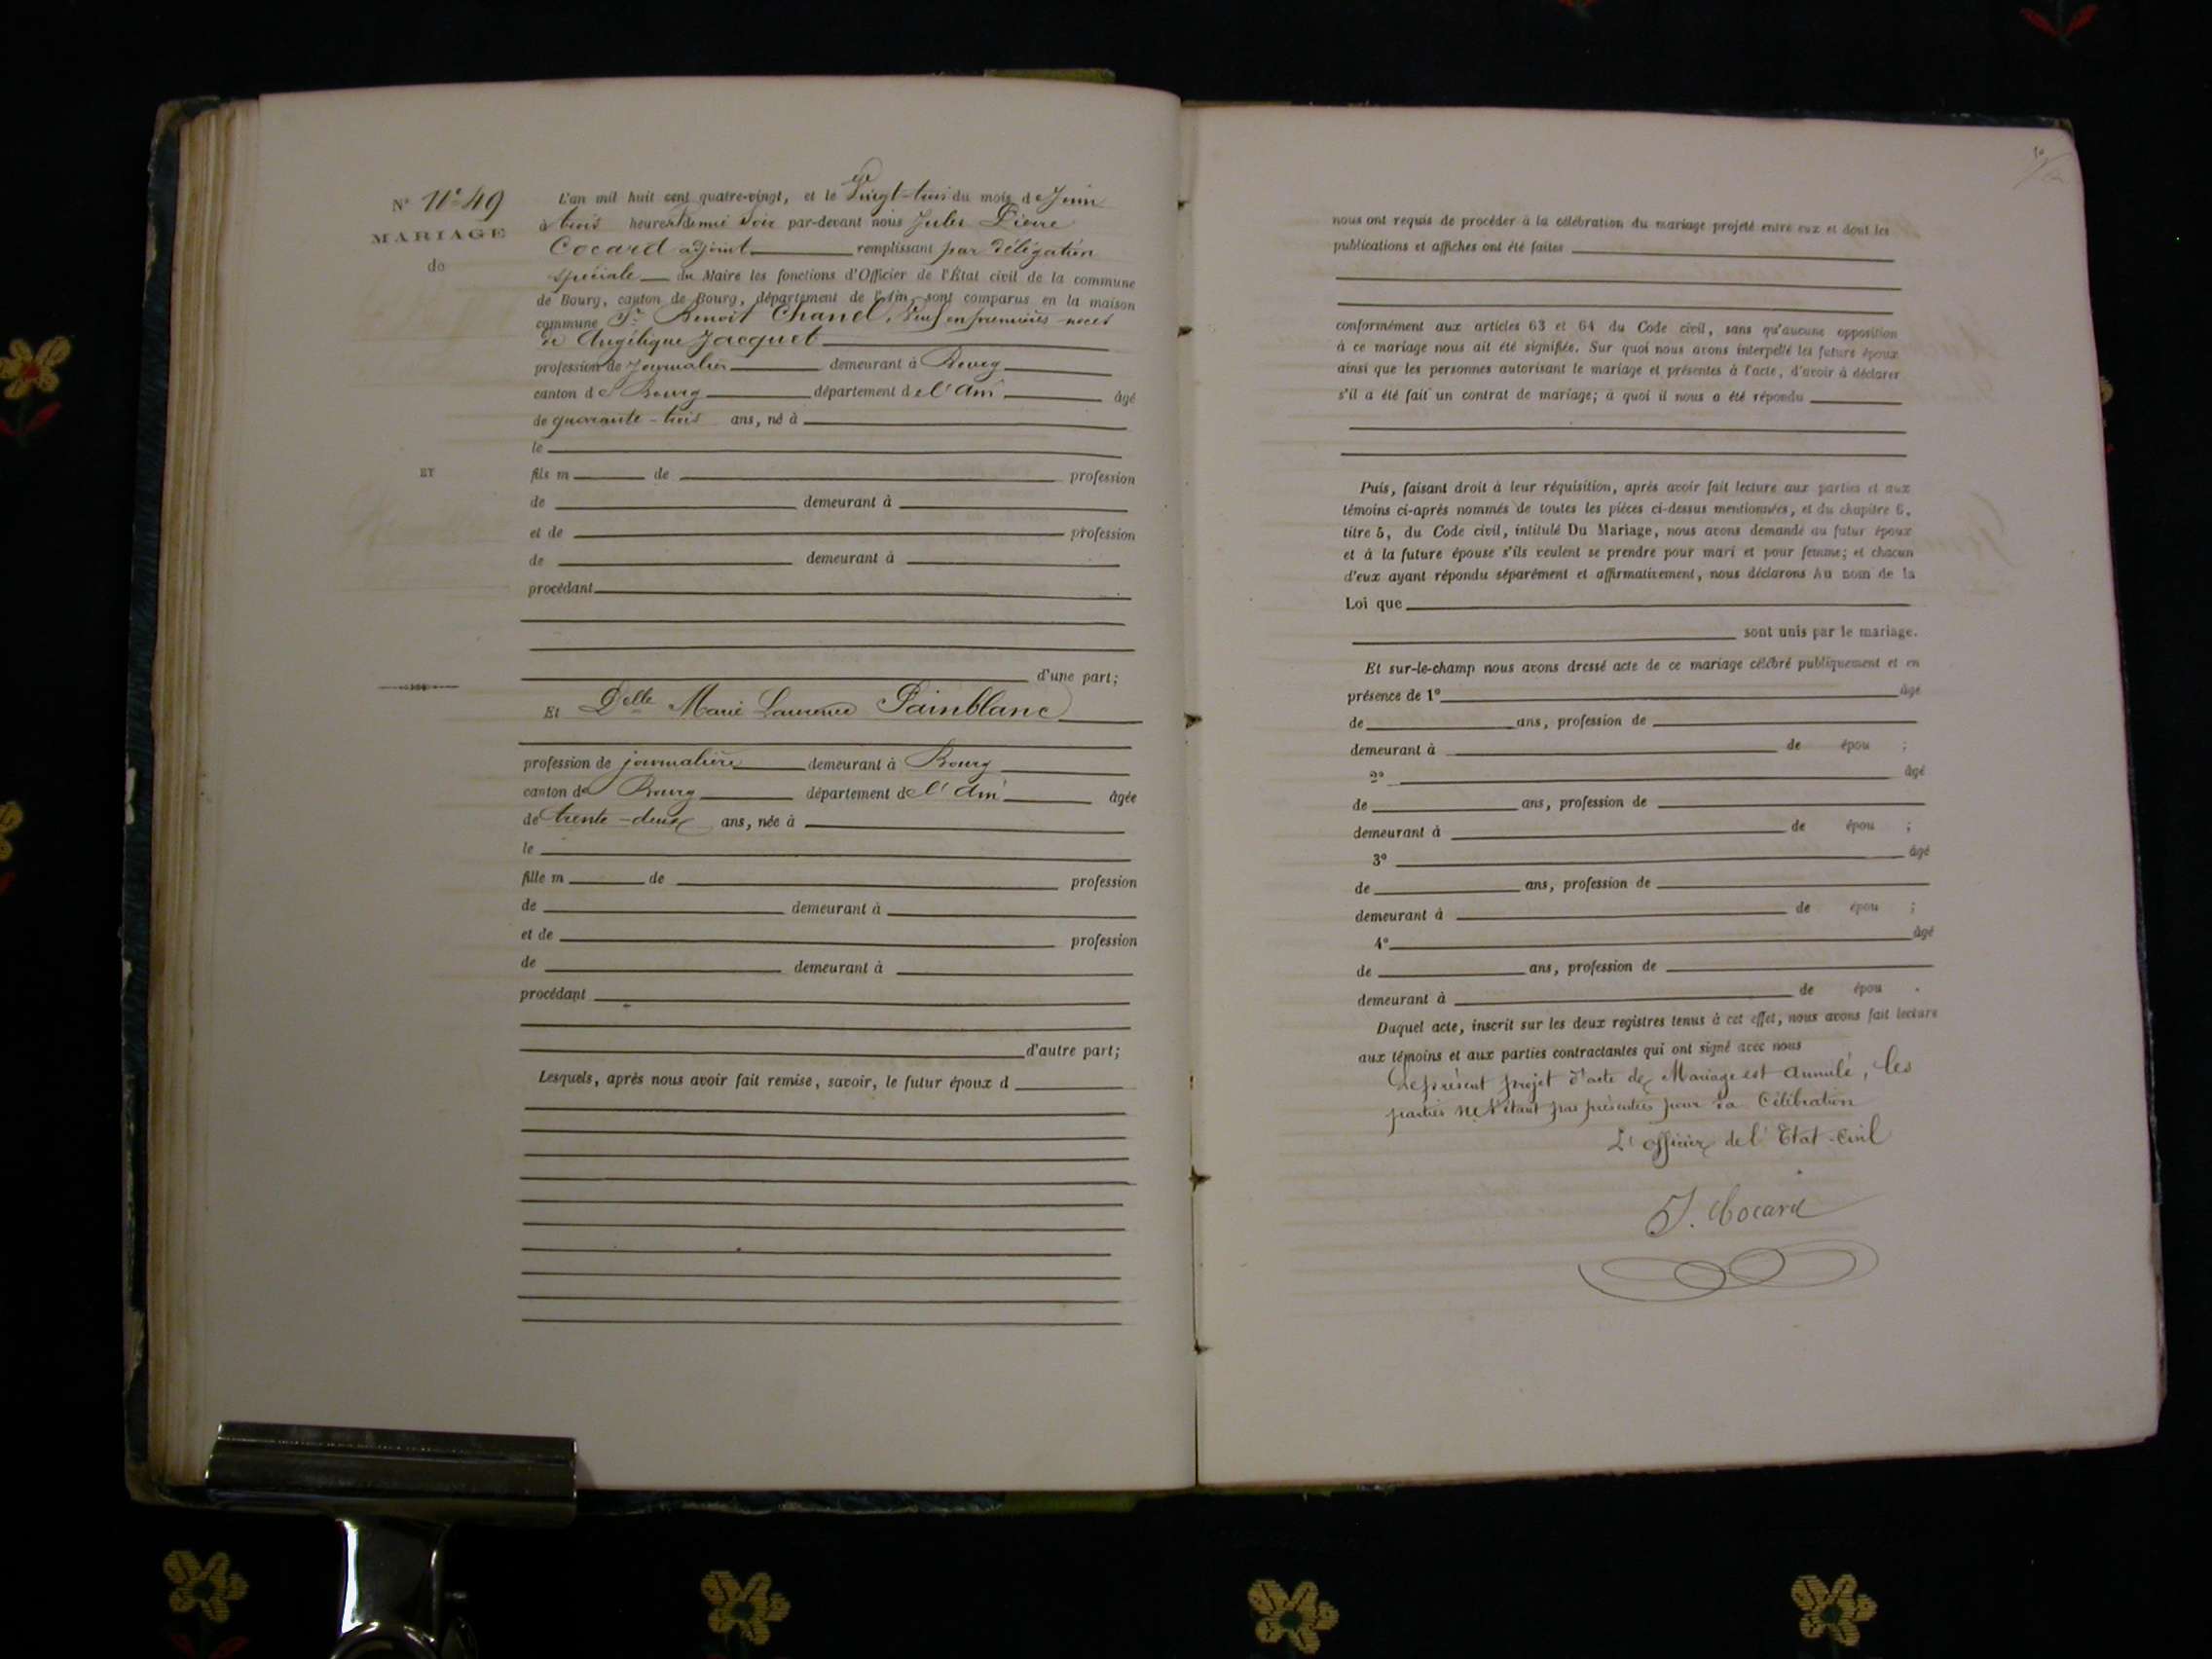 Nº 49
MARIAGE
de
ET
L'an mil huit cent quatre-vingt, et le Vingt-trois du mois de Juin
à trois heures & demie Soir par-devant nous Jules Pierre
Cocard adjoint remplissant par délégation
spéciale du Maire les fonctions d'Officier de l'État civil de la commune
de Bourg, canton de Bourg, département de l'Ain, sont comparus en la maison
commune Sr Benoît Chanel, Veuf en premières noces
de Angélique Jacquet
profession de Journalier demeurant à Bourg
canton de Bourg département de l'Ain âgé
de quarante-trois ans, né à
le
fils m de profession
de demeurant à
et de profession
de demeurant à
procédant
d'une part;
Et Delle Marie Laurence Painblanc
profession de journalière demeurant à Bourg
canton de Bourg département de l'Ain âgée
de trente-deux ans, née à
le
fille m de profession
de demeurant à
et de profession
de demeurant à
procédant
d'autre part;
Lesquels, après nous avoir fait remise, savoir, le futur époux d
nous ont requis de procéder à la célébration du mariage projeté entre eux et dont les
publications et affiches ont été faites
conformément aux articles 63 et 64 du Code civil, sans qu'aucune opposition
à ce mariage nous ait été signifiée. Sur quoi nous avons interpellé les futurs époux
ainsi que les personnes autorisant le mariage et présentes à l'acte, d'avoir à déclarer
s'il a été fait un contrat de mariage; à quoi il nous a été répondu
Puis, faisant droit à leur réquisition, après avoir fait lecture aux parties et aux
témoins ci-après nommés de toutes les pièces ci-dessus mentionnées, et du chapitre 6,
titre 5, du Code civil, intitulé Du Mariage, nous avons demandé au futur époux
et à la future épouse s'ils veulent se prendre pour mari et pour femme; et chacun
d'eux ayant répondu séparément et affirmativement, nous déclarons Au nom de la
Loi que
sont unis par le mariage.
Et sur-le-champ nous avons dressé acte de ce mariage célébré publiquement et en
présence de 1º âgé
de ans, profession de
demeurant à de épou ;
2º âgé
de ans, profession de
demeurant à de épou ;
3º âgé
de ans, profession de
demeurant à de épou ;
4º âgé
de ans, profession de
demeurant à de épou .
Duquel acte, inscrit sur les deux registres tenus à cet effet, nous avons fait lecture
aux témoins et aux parties contractantes qui ont signé avec nous
Le présent projet d'acte de Mariage est annulé, les
parties ne s'étant pas présentées pour la Célébration
L'officier de l'Etat-Civil
J. Cocard